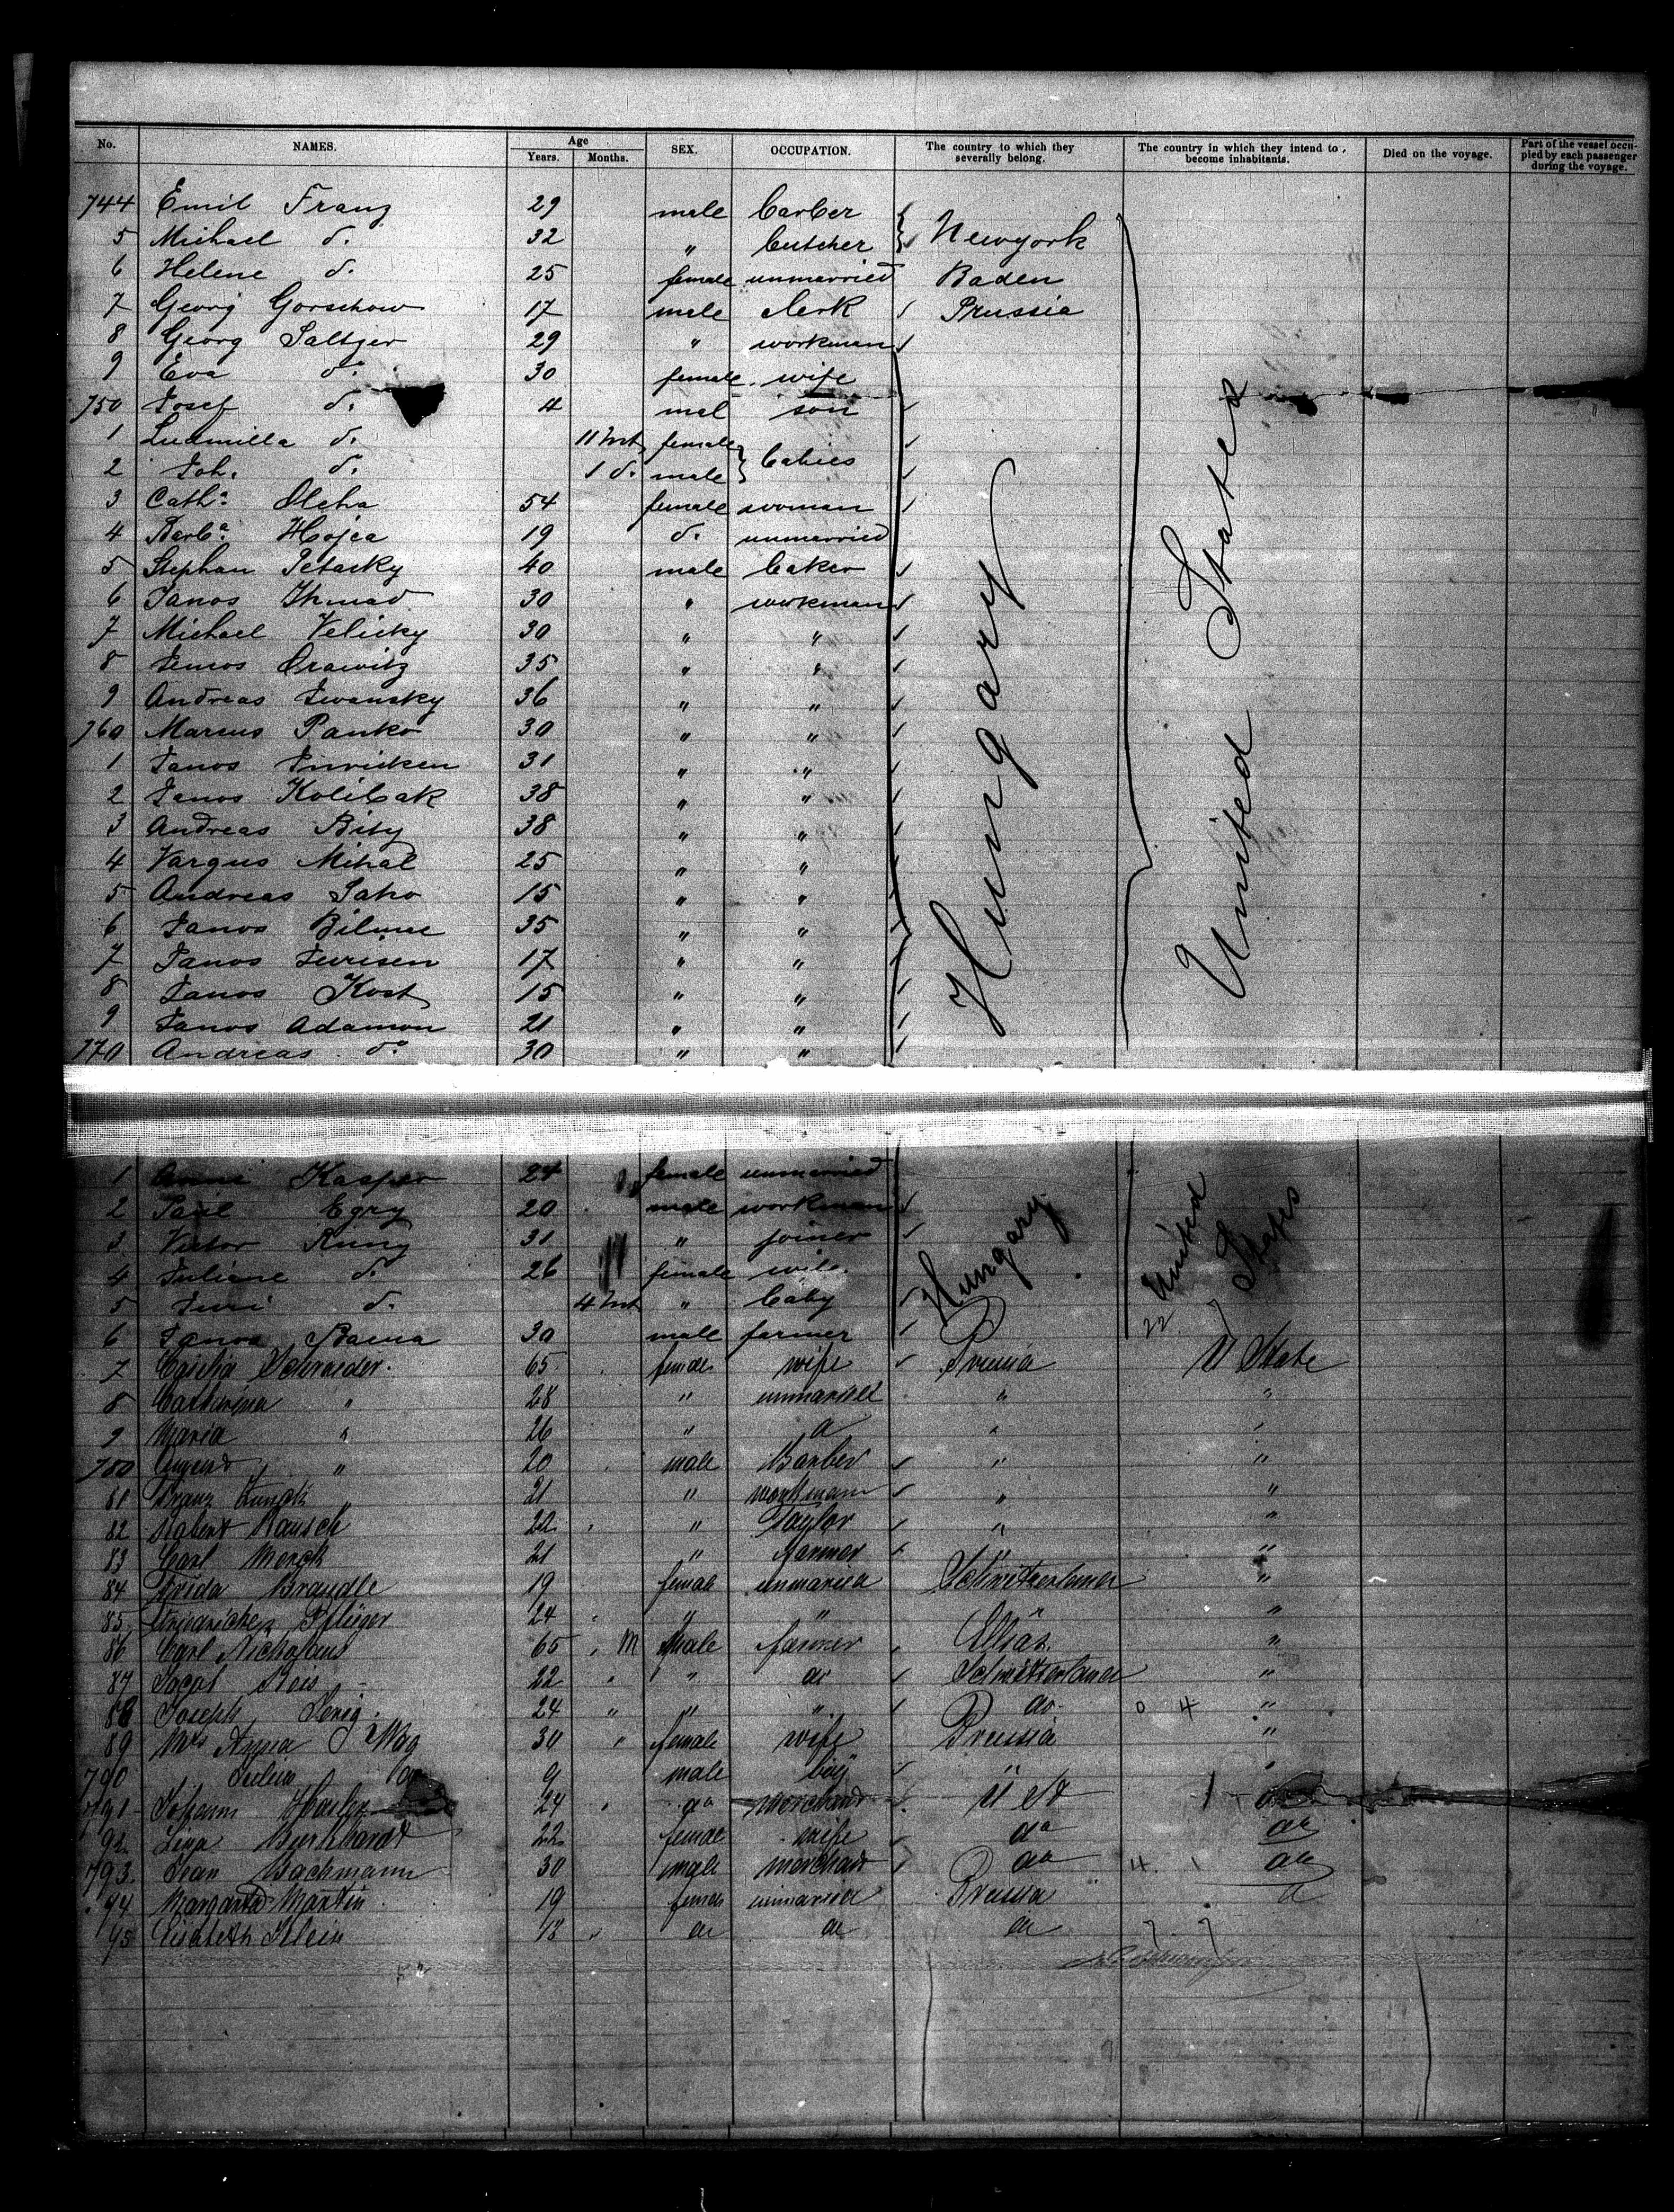 No. NAMES. Age Years. Months. SEX. OCCUPATION. The country to which they severally belong. The country in which they intend to become inhabitants. Died on the voyage. Part of the vessel occupied by each passenger during the voyage.
744 Emil Franz 29 male barber Newyork
5 Michael d. 32 " butcher
6 Helene d. 25 female unmarried Baden
7 Georg Gorschow 17 male clerk Prussia
8 Georg Saltzer 29 " workman
9 Eva d. 30 female wife
750 Josef d. 4 mal son
1 Ludmilla d. 11 Mt female babies
2 Joh. d. 1 d. male
3 Cath.a Oleha 54 female woman
4 Barb.a Hojea 19 d. unmarried
5 Stephan Petasky 40 male baker
6 Janos 30 " workman
7 Michael Velicky 30 " "
8 Orawitz 35 " "
9 Andreas Iwansky 36 " "
760 Marcus Panko 30 " "
1 Janos 31 " "
2 Janos Kolibak 38 " "
3 Andreas Bity 38 " "
4 Vargus Mihal 25 " "
5 Andreas Sako 15 " "
6 Janos 35 " "
7 Janos Jurisen 17 " "
8 Janos Kost 15 " "
9 Janos Adamon 21 " "
770 Andreas do 30 " "
Hungary United States
1 Anna Kasper 24 female unmarried
2 Paul Egry 20 male workman
3 Victor Kung 31 " joiner
4 Juliane d. 26 female wife
5 Juri d. 4 Mt " baby
6 Janos 30 male farmer
Hungary United States
7 Schraider 65 female wife Prussia U State
8 Catharina " 28 " unmarried " "
9 Maria " 26 " " "
780 " 20 male Barber " "
81 Franz " 21 " workmann " "
82 Robert Rausch 22 " Taylor " "
83 Carl Merck 21 " farmer "
84 Frida Brandle 19 female unmaried Schwitzerland "
85 Pflüger 24 " " " "
86 Carl Nicholaus 65 M Male farmer Elsas "
87 Jacob Reis 22 " do Schwitzerland "
88 Joseph 24 " " do 0 4 "
89 Mrs Anna 30 female wife Prussia "
790 9 male boy " "
791 Johann 24 do Merchand U St
92 Burkhardt 22 female wife do do
793 Jean Bachmann 30 male merchand do do
94 Margareta Martin 19 female unmaried Prussia
95 Elisabeth Klein 18 do do do